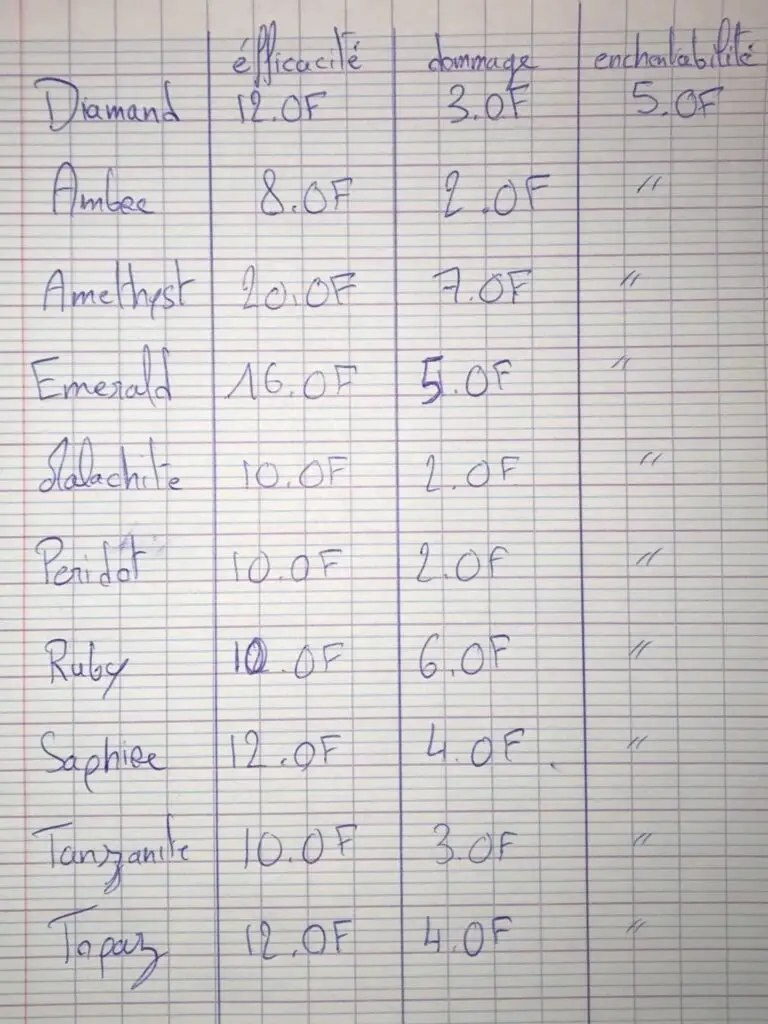 éfficacité dommage enchentabilité
Diamand 12.0F 3.0F 5.0F
Ambre 8.0F 2.0F "
Amethyst 20.0F 7.0F "
Emerald 16.0F 5.0F "
Malachite 10.0F 2.0F "
Peridot 10.0F 2.0F "
Ruby 10.0F 6.0F "
Saphire 12.0F 4.0F "
Tanzanite 10.0F 3.0F "
Topaz 12.0F 4.0F "